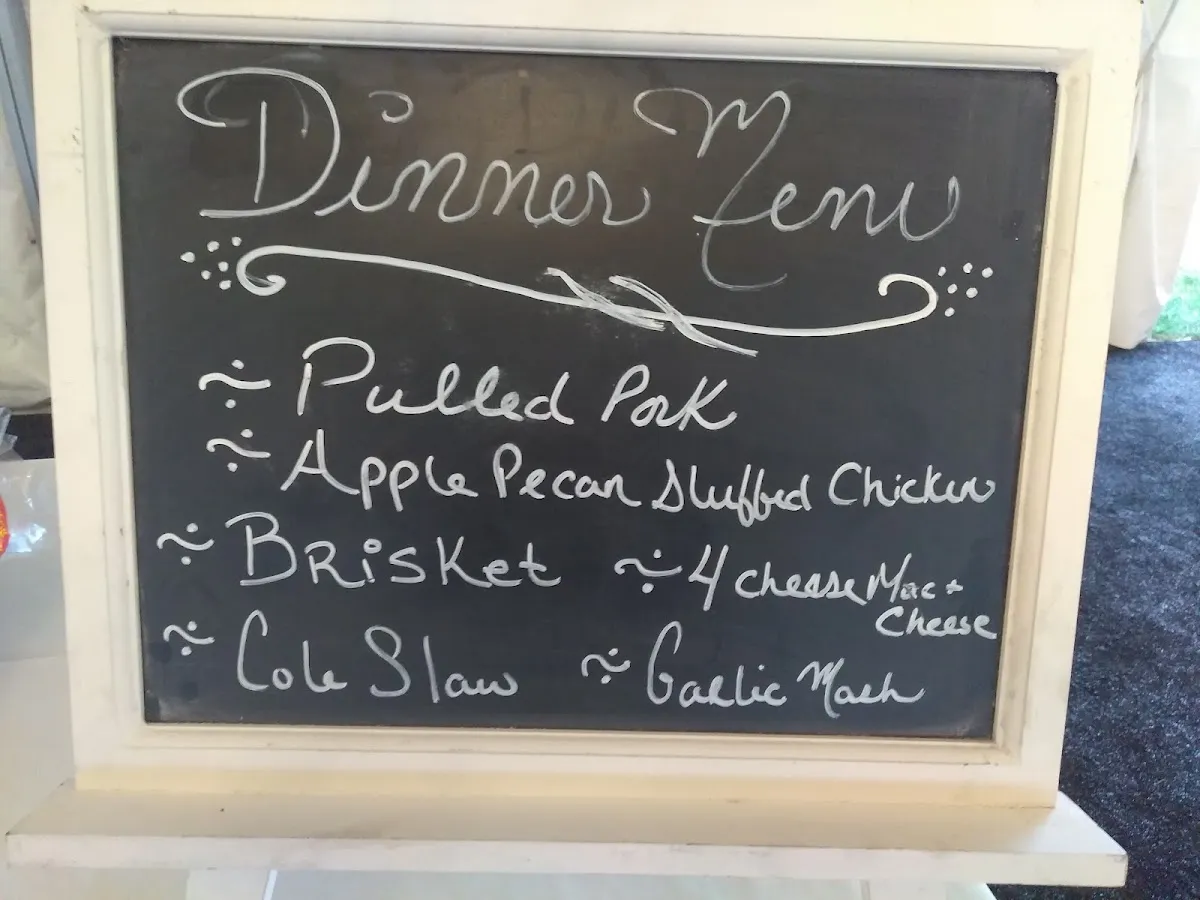 Dinner Menu
Pulled Pork
Apple Pecan Stuffed Chicken
BRisket
4 cheese Mac +
Cheese
Cole Slaw
Garlic Mash